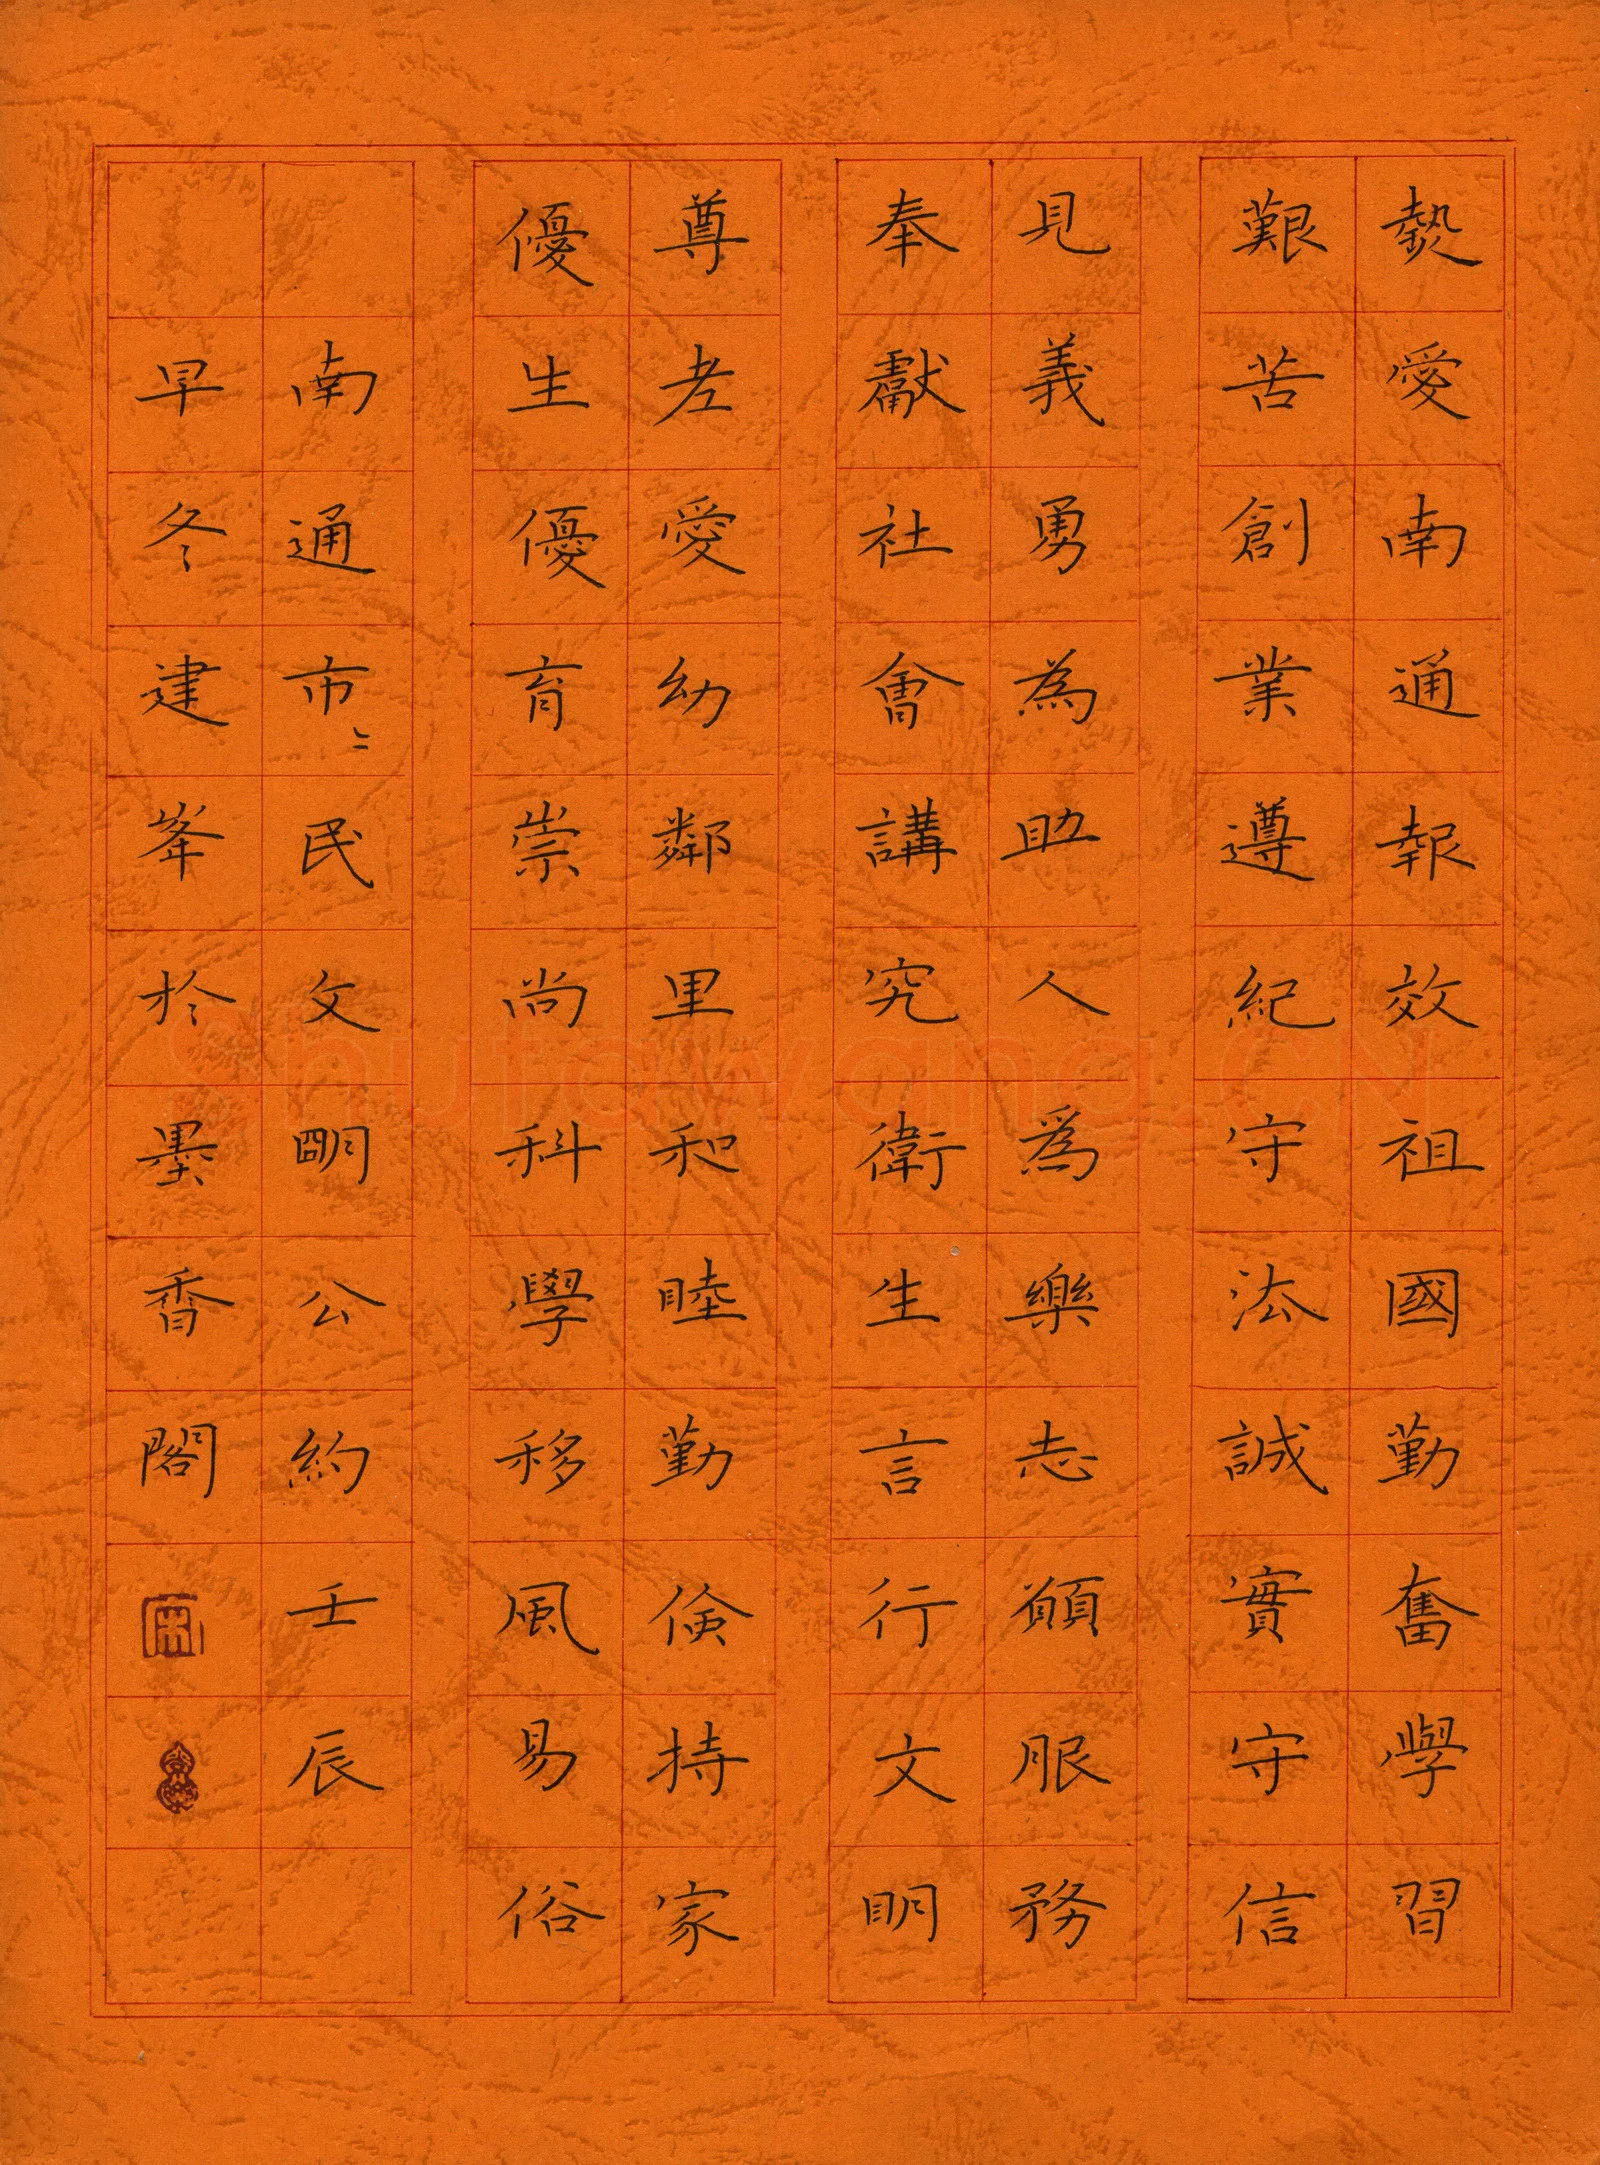 熱愛南通報效祖國勤奮學習
艱苦創業遵紀守法誠實守信
見義勇為助人為樂志願服務
奉獻社會講究衛生言行文明
尊老愛幼鄰里和睦勤儉持家
優生優育崇尚科學移風易俗
南通市二民文明公約壬辰
早冬建峯於墨香閣
Shufawang.CN